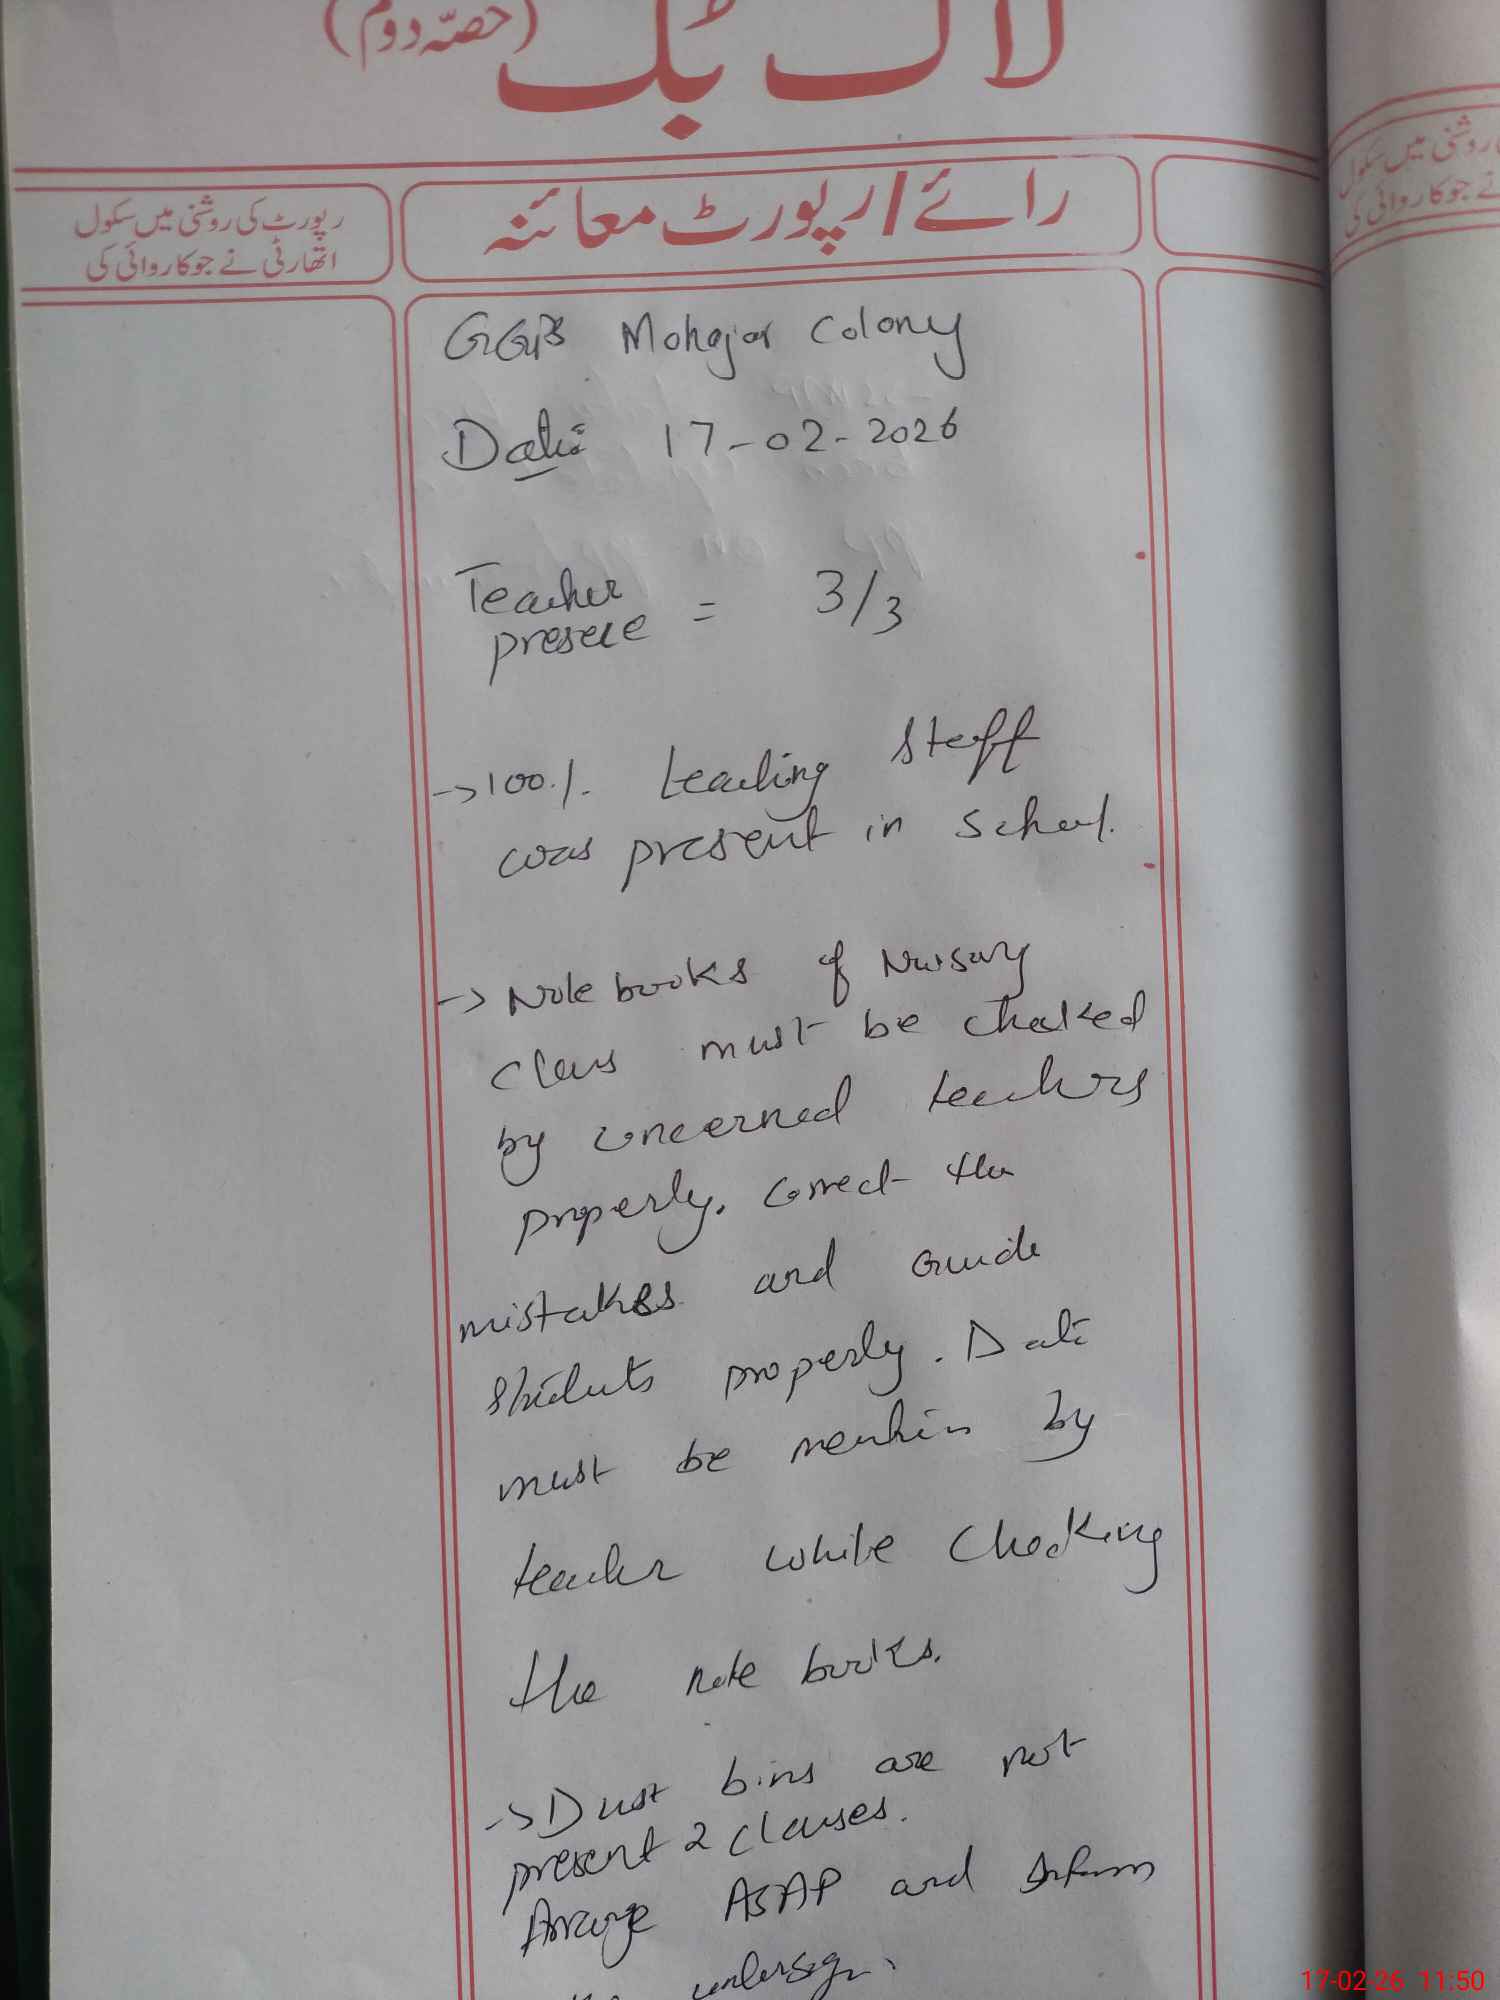 لاگ بک (حصہ دوم)
رائے/رپورٹ معائنہ
رپورٹ کی روشنی میں سکول
اتھارٹی نے جو کاروائی کی
روشنی میں سکول
نے جو کاروائی کی
Mohajar Colony
Date: 17-02-2026
Teacher
= 3/3
→ 100% teaching staff
was present in school.
→ Note books of Nursary
class must be checked
by concerned teachers
properly. Correct the
mistakes and Guide
students properly. Date
must be mention by
teacher while checking
the note books.
→ Dust bins are not
present 2 classes.
Arrange ASAP and Inform
undersign.
17-02-26 11:50